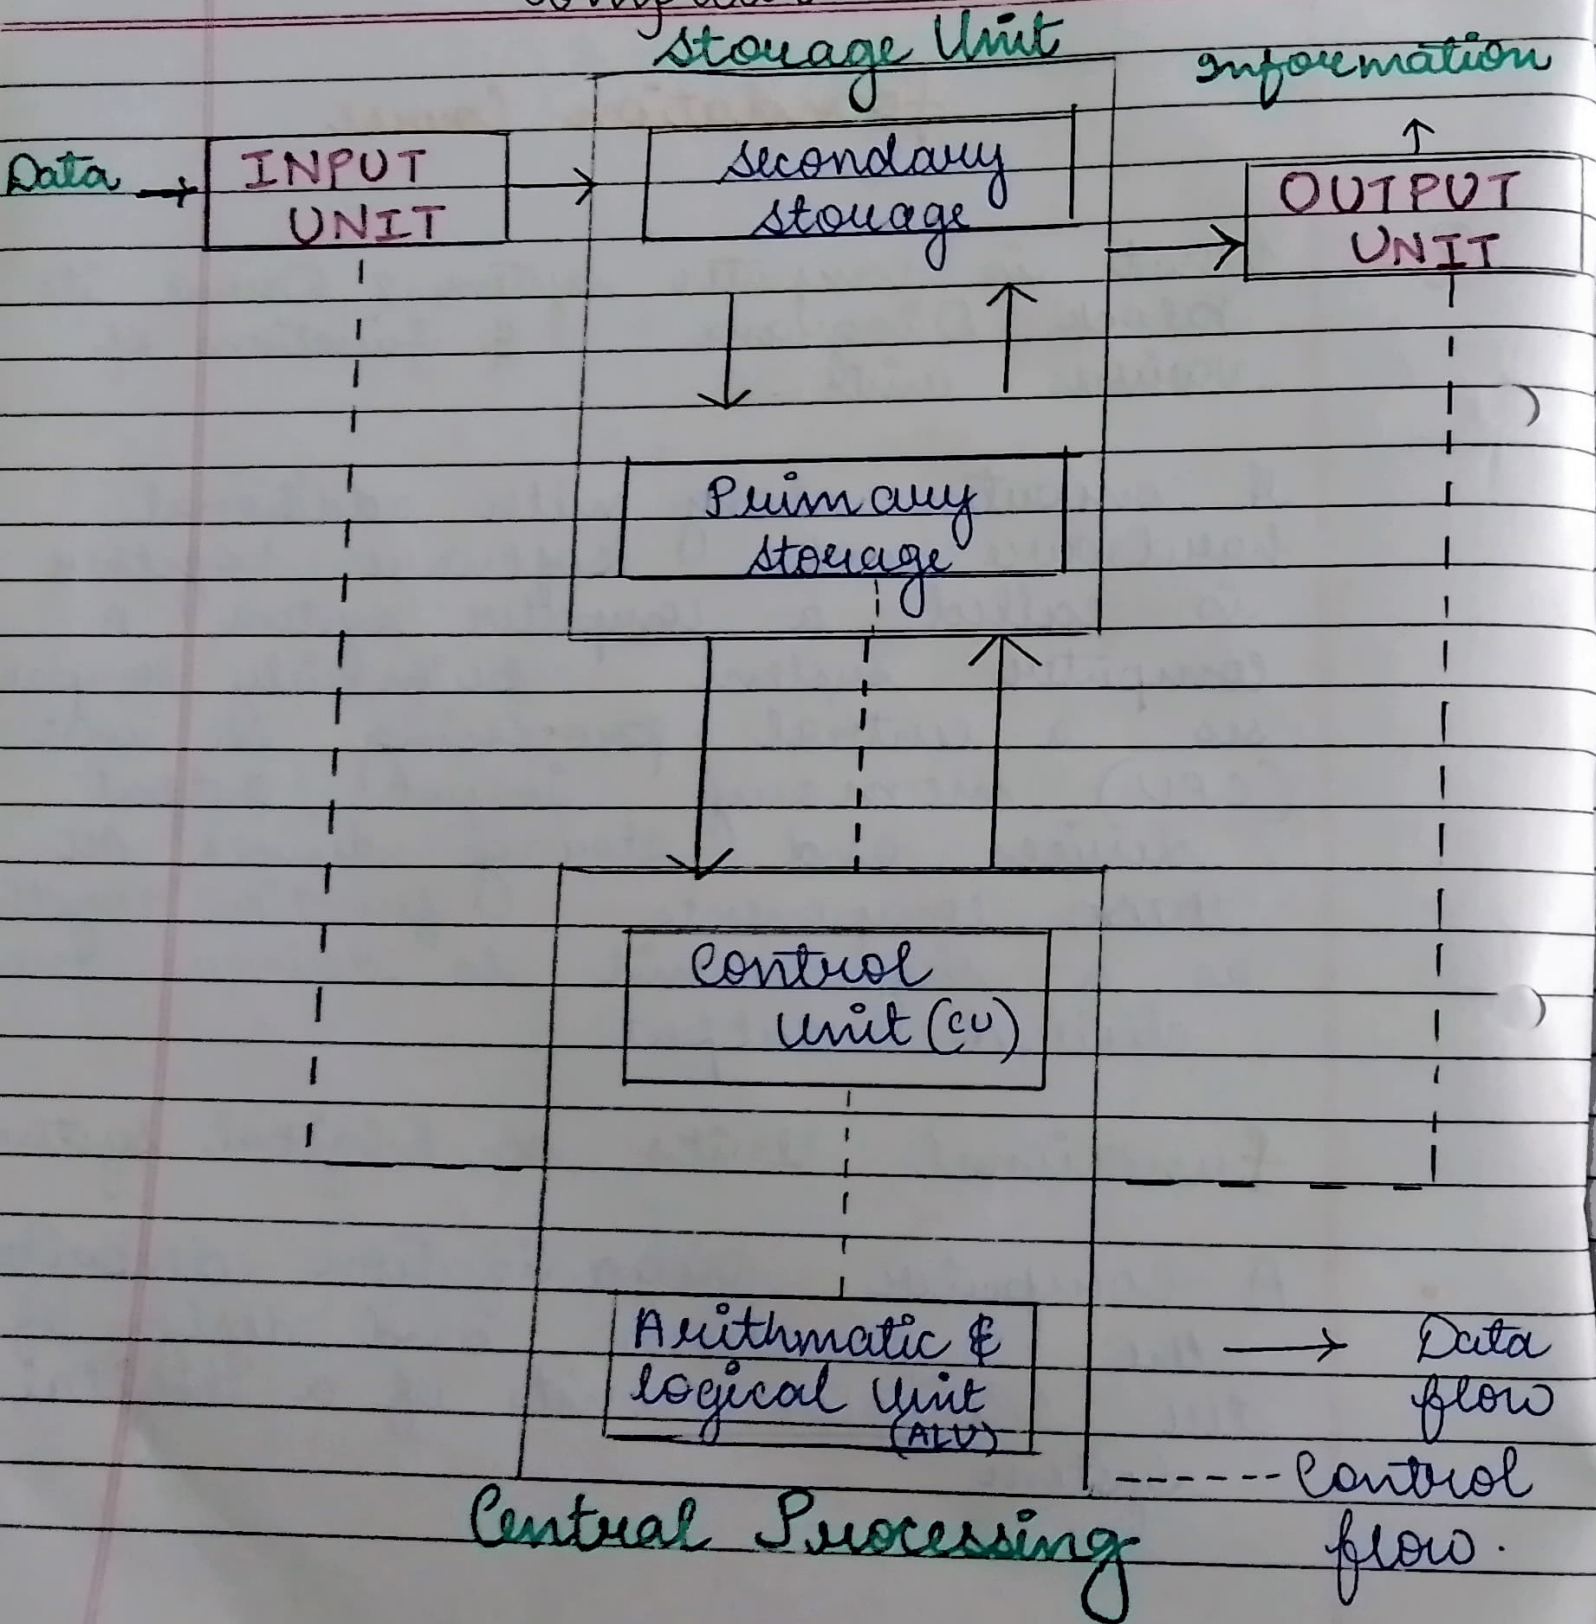 Storage Unit
Information
Data
INPUT
UNIT
Secondary
Storage
OUTPUT
UNIT
Primary
Storage
Control
Unit (CU)
Arithmatic &
Logical Unit
(ALU)
Data
flow
Control
flow.
Central Processing